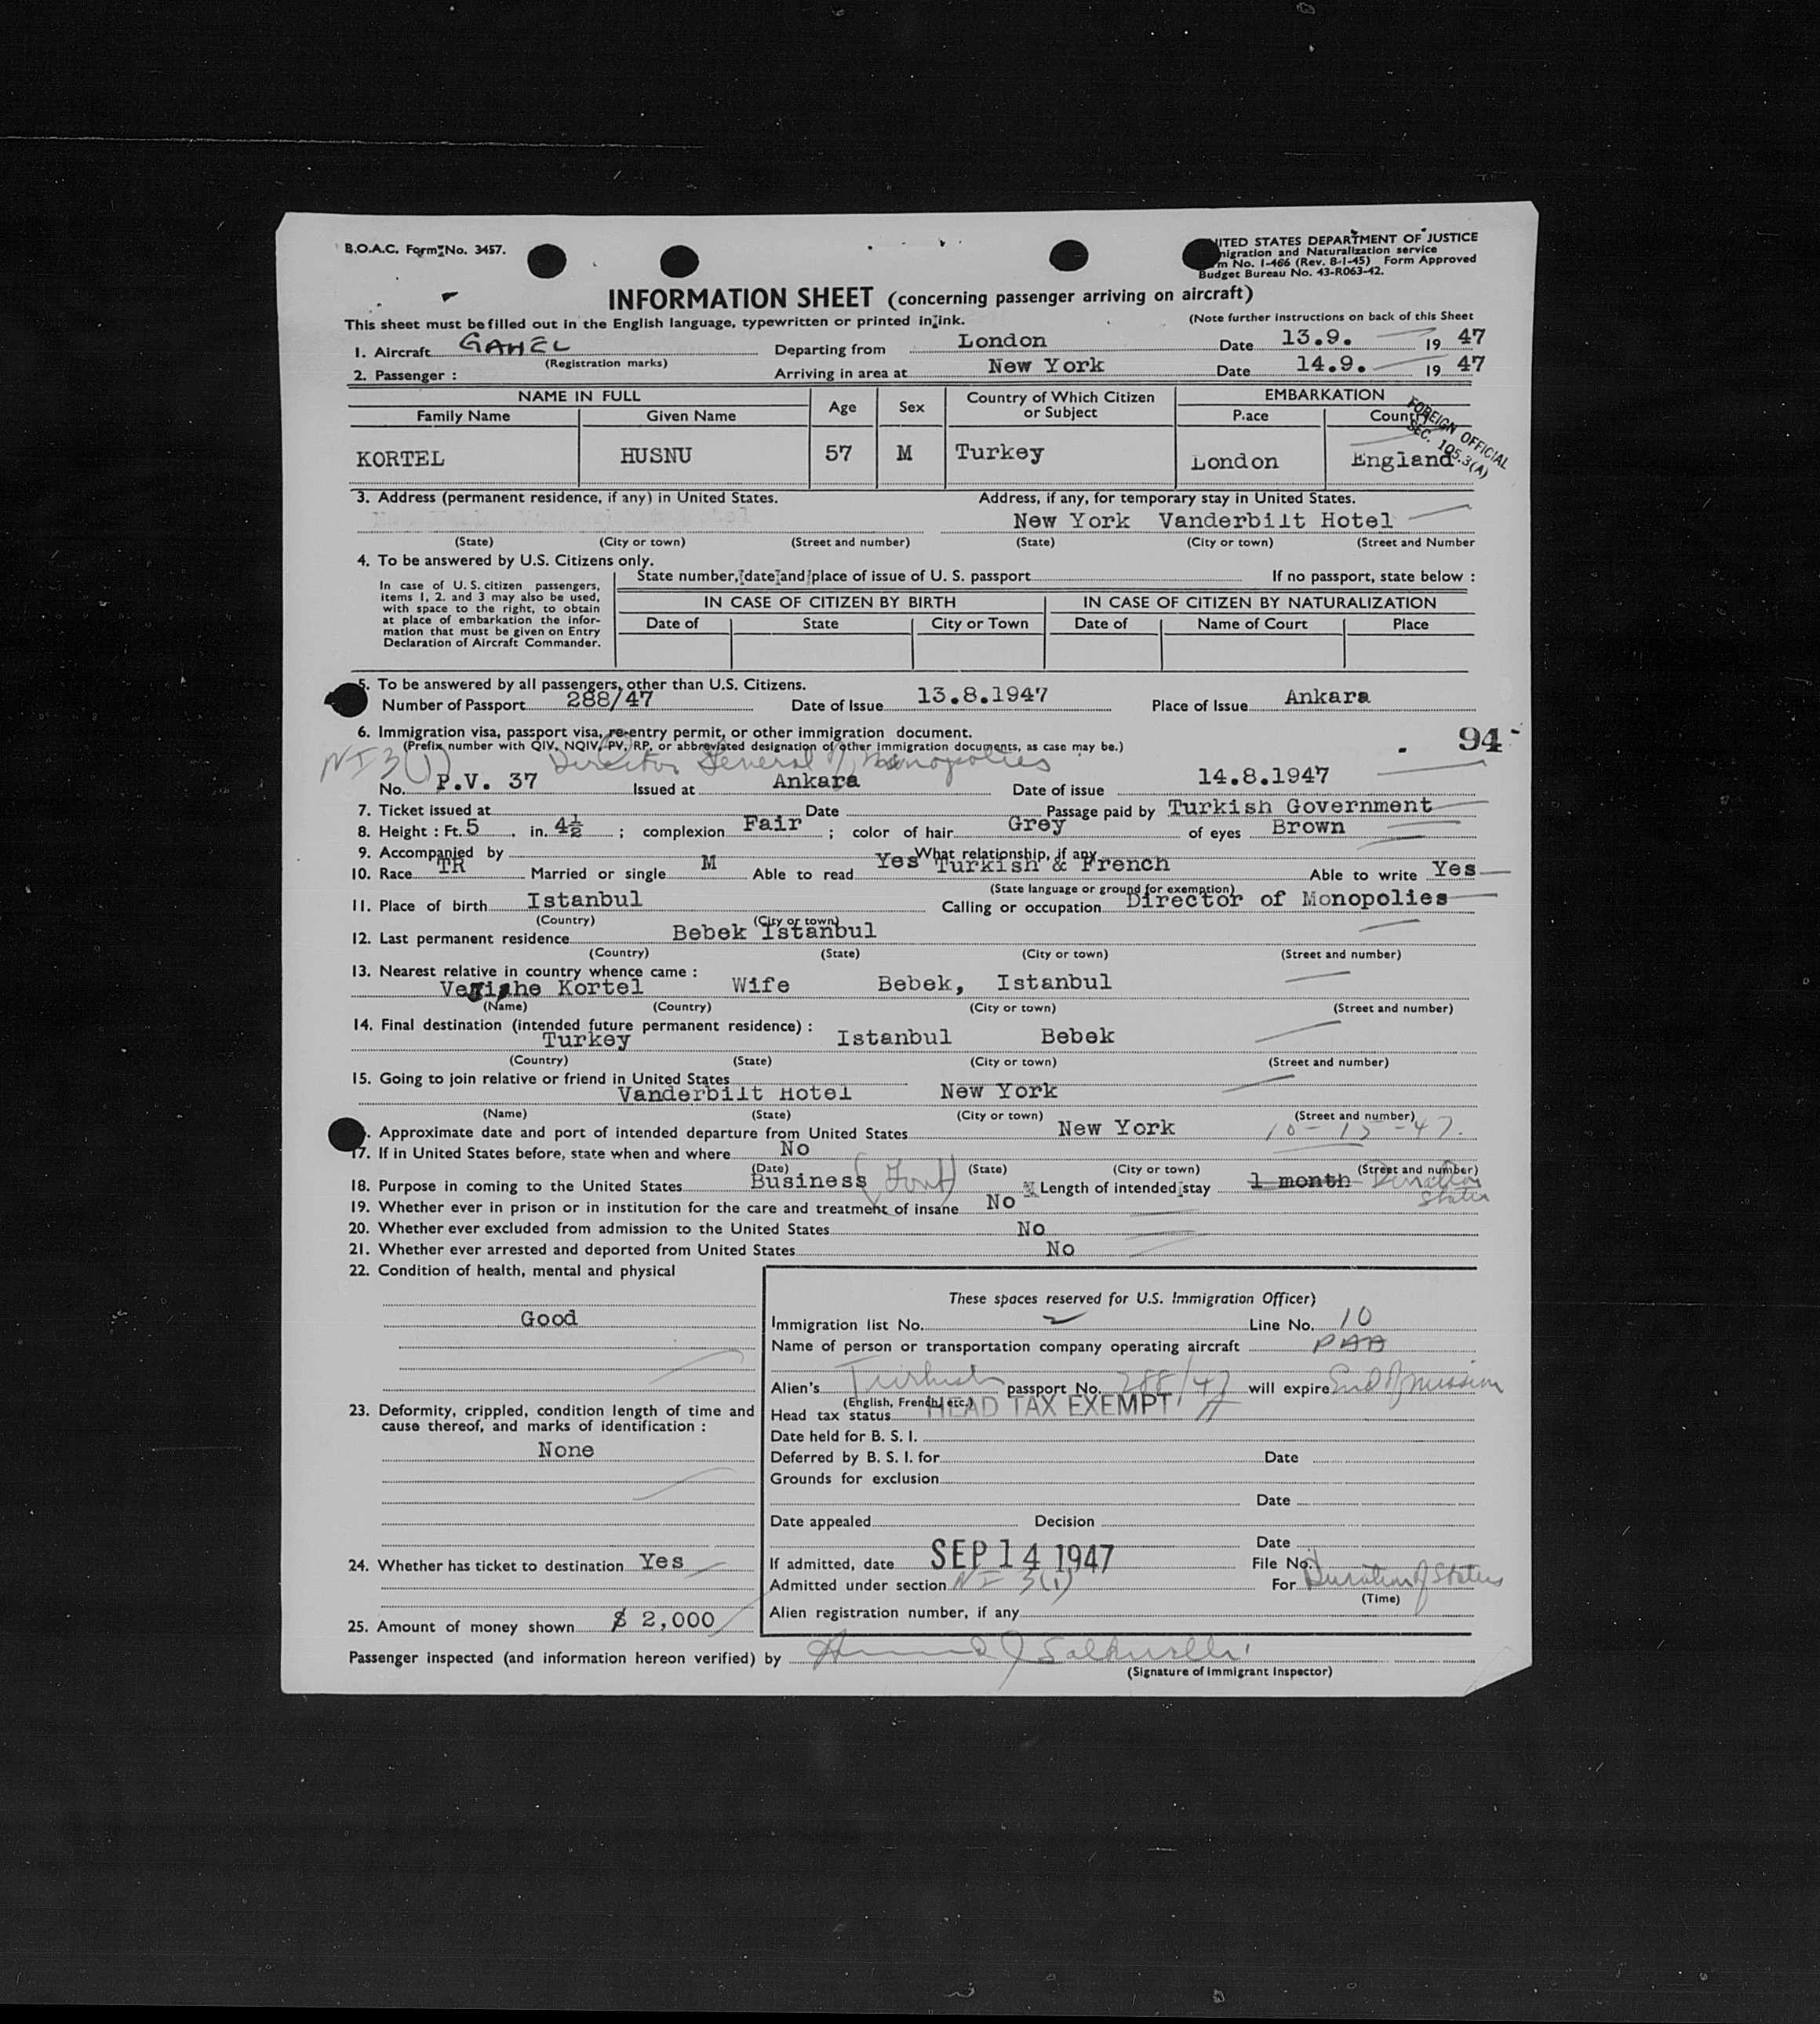 B.O.A.C. Form No. 3457.
ITED STATES DEPARTMENT OF JUSTICE
migration and Naturalization service
m No. 1-466 (Rev. 8-1-45) Form Approved
Budget Bureau No. 43-R063-42.
INFORMATION SHEET (concerning passenger arriving on aircraft)
This sheet must be filled out in the English language, typewritten or printed in ink.
(Note further instructions on back of this Sheet
1. Aircraft GAHEL Departing from London Date 13.9. 19 47
(Registration marks)
2. Passenger : Arriving in area at New York Date 14.9. 19 47
NAME IN FULL Age Sex Country of Which Citizen or Subject EMBARKATION
Family Name Given Name P.ace Country
FOREIGN OFFICIAL
SEC. 105.3(A)
KORTEL HUSNU 57 M Turkey London England
3. Address (permanent residence, if any) in United States. Address, if any, for temporary stay in United States.
New York Vanderbilt Hotel
(State) (City or town) (Street and number) (State) (City or town) (Street and Number
4. To be answered by U.S. Citizens only.
In case of U.S. citizen passengers, items 1, 2. and 3 may also be used, with space to the right, to obtain at place of embarkation the information that must be given on Entry Declaration of Aircraft Commander.
State number, date and place of issue of U. S. passport If no passport, state below :
IN CASE OF CITIZEN BY BIRTH IN CASE OF CITIZEN BY NATURALIZATION
Date of State City or Town Date of Name of Court Place
5. To be answered by all passengers, other than U.S. Citizens.
Number of Passport 288/47 Date of Issue 13.8.1947 Place of Issue Ankara
6. Immigration visa, passport visa, re-entry permit, or other immigration document.
(Prefix number with QIV, NQIV, PV, RP, or abbreviated designation of other immigration documents, as case may be.)
94
NI 3(1) Director General of Monopolies
No. P.V. 37 Issued at Ankara Date of issue 14.8.1947
7. Ticket issued at Date Passage paid by Turkish Government
8. Height : Ft. 5 . in. 4½ ; complexion Fair ; color of hair Grey of eyes Brown
9. Accompanied by What relationship, if any
10. Race TR Married or single M Able to read Yes Turkish & French Able to write Yes
(State language or ground for exemption)
11. Place of birth Istanbul Calling or occupation Director of Monopolies
(Country) (City or town)
12. Last permanent residence Bebek Istanbul
(Country) (State) (City or town) (Street and number)
13. Nearest relative in country whence came :
Kortel Wife Bebek, Istanbul
(Name) (Country) (City or town) (Street and number)
14. Final destination (intended future permanent residence) :
Turkey Istanbul Bebek
(Country) (State) (City or town) (Street and number)
15. Going to join relative or friend in United States
Vanderbilt Hotel New York
(Name) (State) (City or town) (Street and number)
. Approximate date and port of intended departure from United States New York 10-15-47.
17. If in United States before, state when and where No
(Date) (State) (City or town) (Street and number)
18. Purpose in coming to the United States Business Length of intended stay 1 month Duration Status
19. Whether ever in prison or in institution for the care and treatment of insane No
20. Whether ever excluded from admission to the United States No
21. Whether ever arrested and deported from United States No
22. Condition of health, mental and physical
Good
These spaces reserved for U.S. Immigration Officer)
Immigration list No. Line No. 10
Name of person or transportation company operating aircraft PAA
Alien's Turkish passport No. 288/47 will expire End of mission
(English, French, etc.)
Head tax status HEAD TAX EXEMPT
23. Deformity, crippled, condition length of time and
cause thereof, and marks of identification :
None
Date held for B. S. I.
Deferred by B. S. I. for Date
Grounds for exclusion
Date
Date appealed Decision
Date
24. Whether has ticket to destination Yes
If admitted, date SEP 14 1947 File No.
Admitted under section NI 3(1) For Duration of Status
(Time)
Alien registration number, if any
25. Amount of money shown $ 2,000
Passenger inspected (and information hereon verified) by
(Signature of Immigrant Inspector)